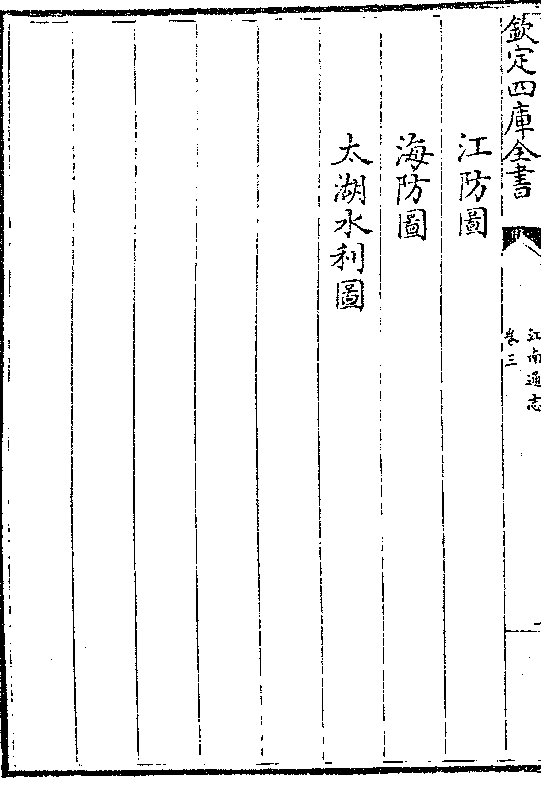 欽定四庫全書
江南通志
卷三
江防圖
海防圖
太湖水利圖